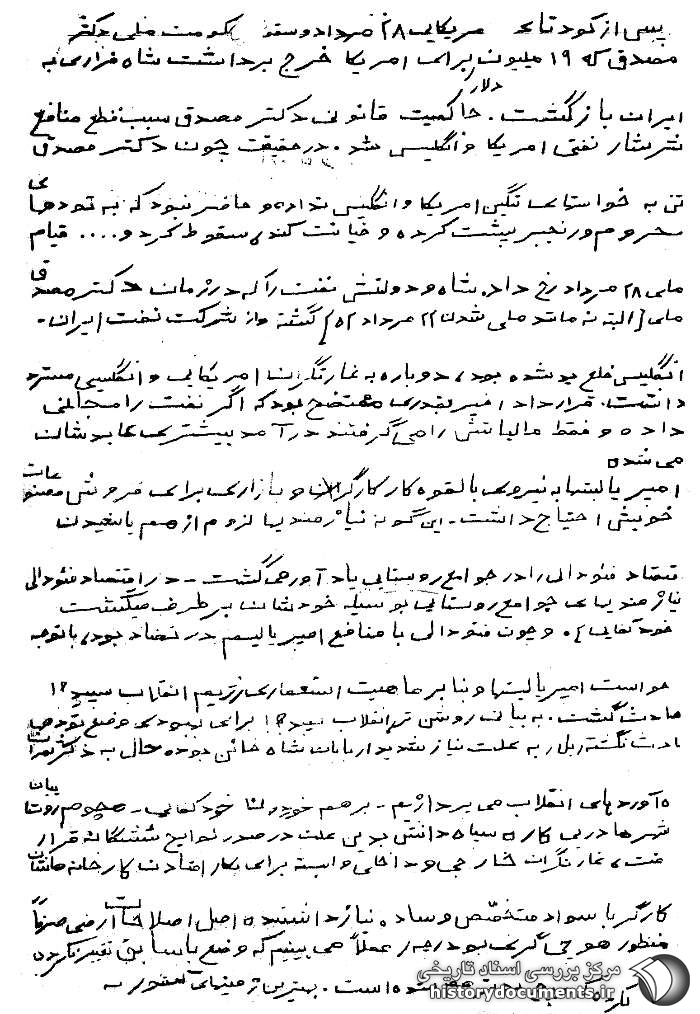 پس از کودتای مریکایی ۲۸ مرداد و سقو حکومت ملی دکتر
مصدق که ۱۹ میلیون برای امریکا خرج برداشت شاه فراری به
دلار
ایران بازگشت. حاکمیت قانونی دکتر مصدق سبب قطع منافع
سرشار نفتی امریکا و انگلیس شد. در حقیقت چون دکتر مصدق
تن به خواستهای ننگین امریکا و انگلیس نداده و حاضر نبود که به توده‌های
محروم و رنجبر پشت کرده و خیانت کند، سقوط کرد و.... قیام
ملی ۲۸ مرداد رخ داد. شاه و دولتش نفت را که در زمان دکتر مصدق
ملی [البته نه مانند ملی شدن ۲۲ مرداد ۵۲] گشته و از شرکت نفت ایران-
انگلیس خلع ید شده بود، دوباره به غارتگران امریکایی و انگلیسی مسترد
داشت. قرارداد اخیر بقدری مفتضح بود که اگر نفت را مجانی
داده و فقط مالیاتش را می‌گرفتند درآمد بیشتری عایدشان
می‌شد.
امپریالیستها به نیروی بالقوه کار کارگران و بازاری برای فروش مصنوعات
خویش احتیاج داشت. این گونه نیازمندیها لزوم از هم پاشیدن
قتصاد فئودالی را در جوامع روستایی یادآور می‌گشت - در اقتصاد فئودالی
نیازمندیهای جوامع روستائی بوسیله خودشان برطرف میگشت
خودکفایی]. و چون فئودالی با منافع امپریالیسم در تضاد بود، با توجه
خواست امپریالیستها و بنا بر ماهیت استعماری رژیم انقلاب سپید!؟
حادث گشت. به بیانی روشن تر انقلاب سپید!؟ برای بهبودی وضع توده‌ها
ادث نگشته، بل به علت نیاز شدید اربابان شاه خائن بوده حال به ذکر ثمرات
ه‌آوردهای انقلاب می‌پردازیم - برهم خوردن خودکفایی - هجوم روستاییان
شهرها در پی کار. سپاه دانش بدین علت در صدر لوایح ششگانه قرار
فت، غارتگران خارجی و داخلی وابسته برای بکار افتادن کارخانه‌هاشان
کارگر با سواد متخصص و ساده نیاز داشتند. اصل اصلاحات ارضی صرفاً
منظور هوچی‌گری بود. چه عملاً می‌بینیم که وضع با سابق تغییر نکرده
شده است. بهترین زمینهای
مرکز بررسی اسناد تاریخی
historydocuments.ir